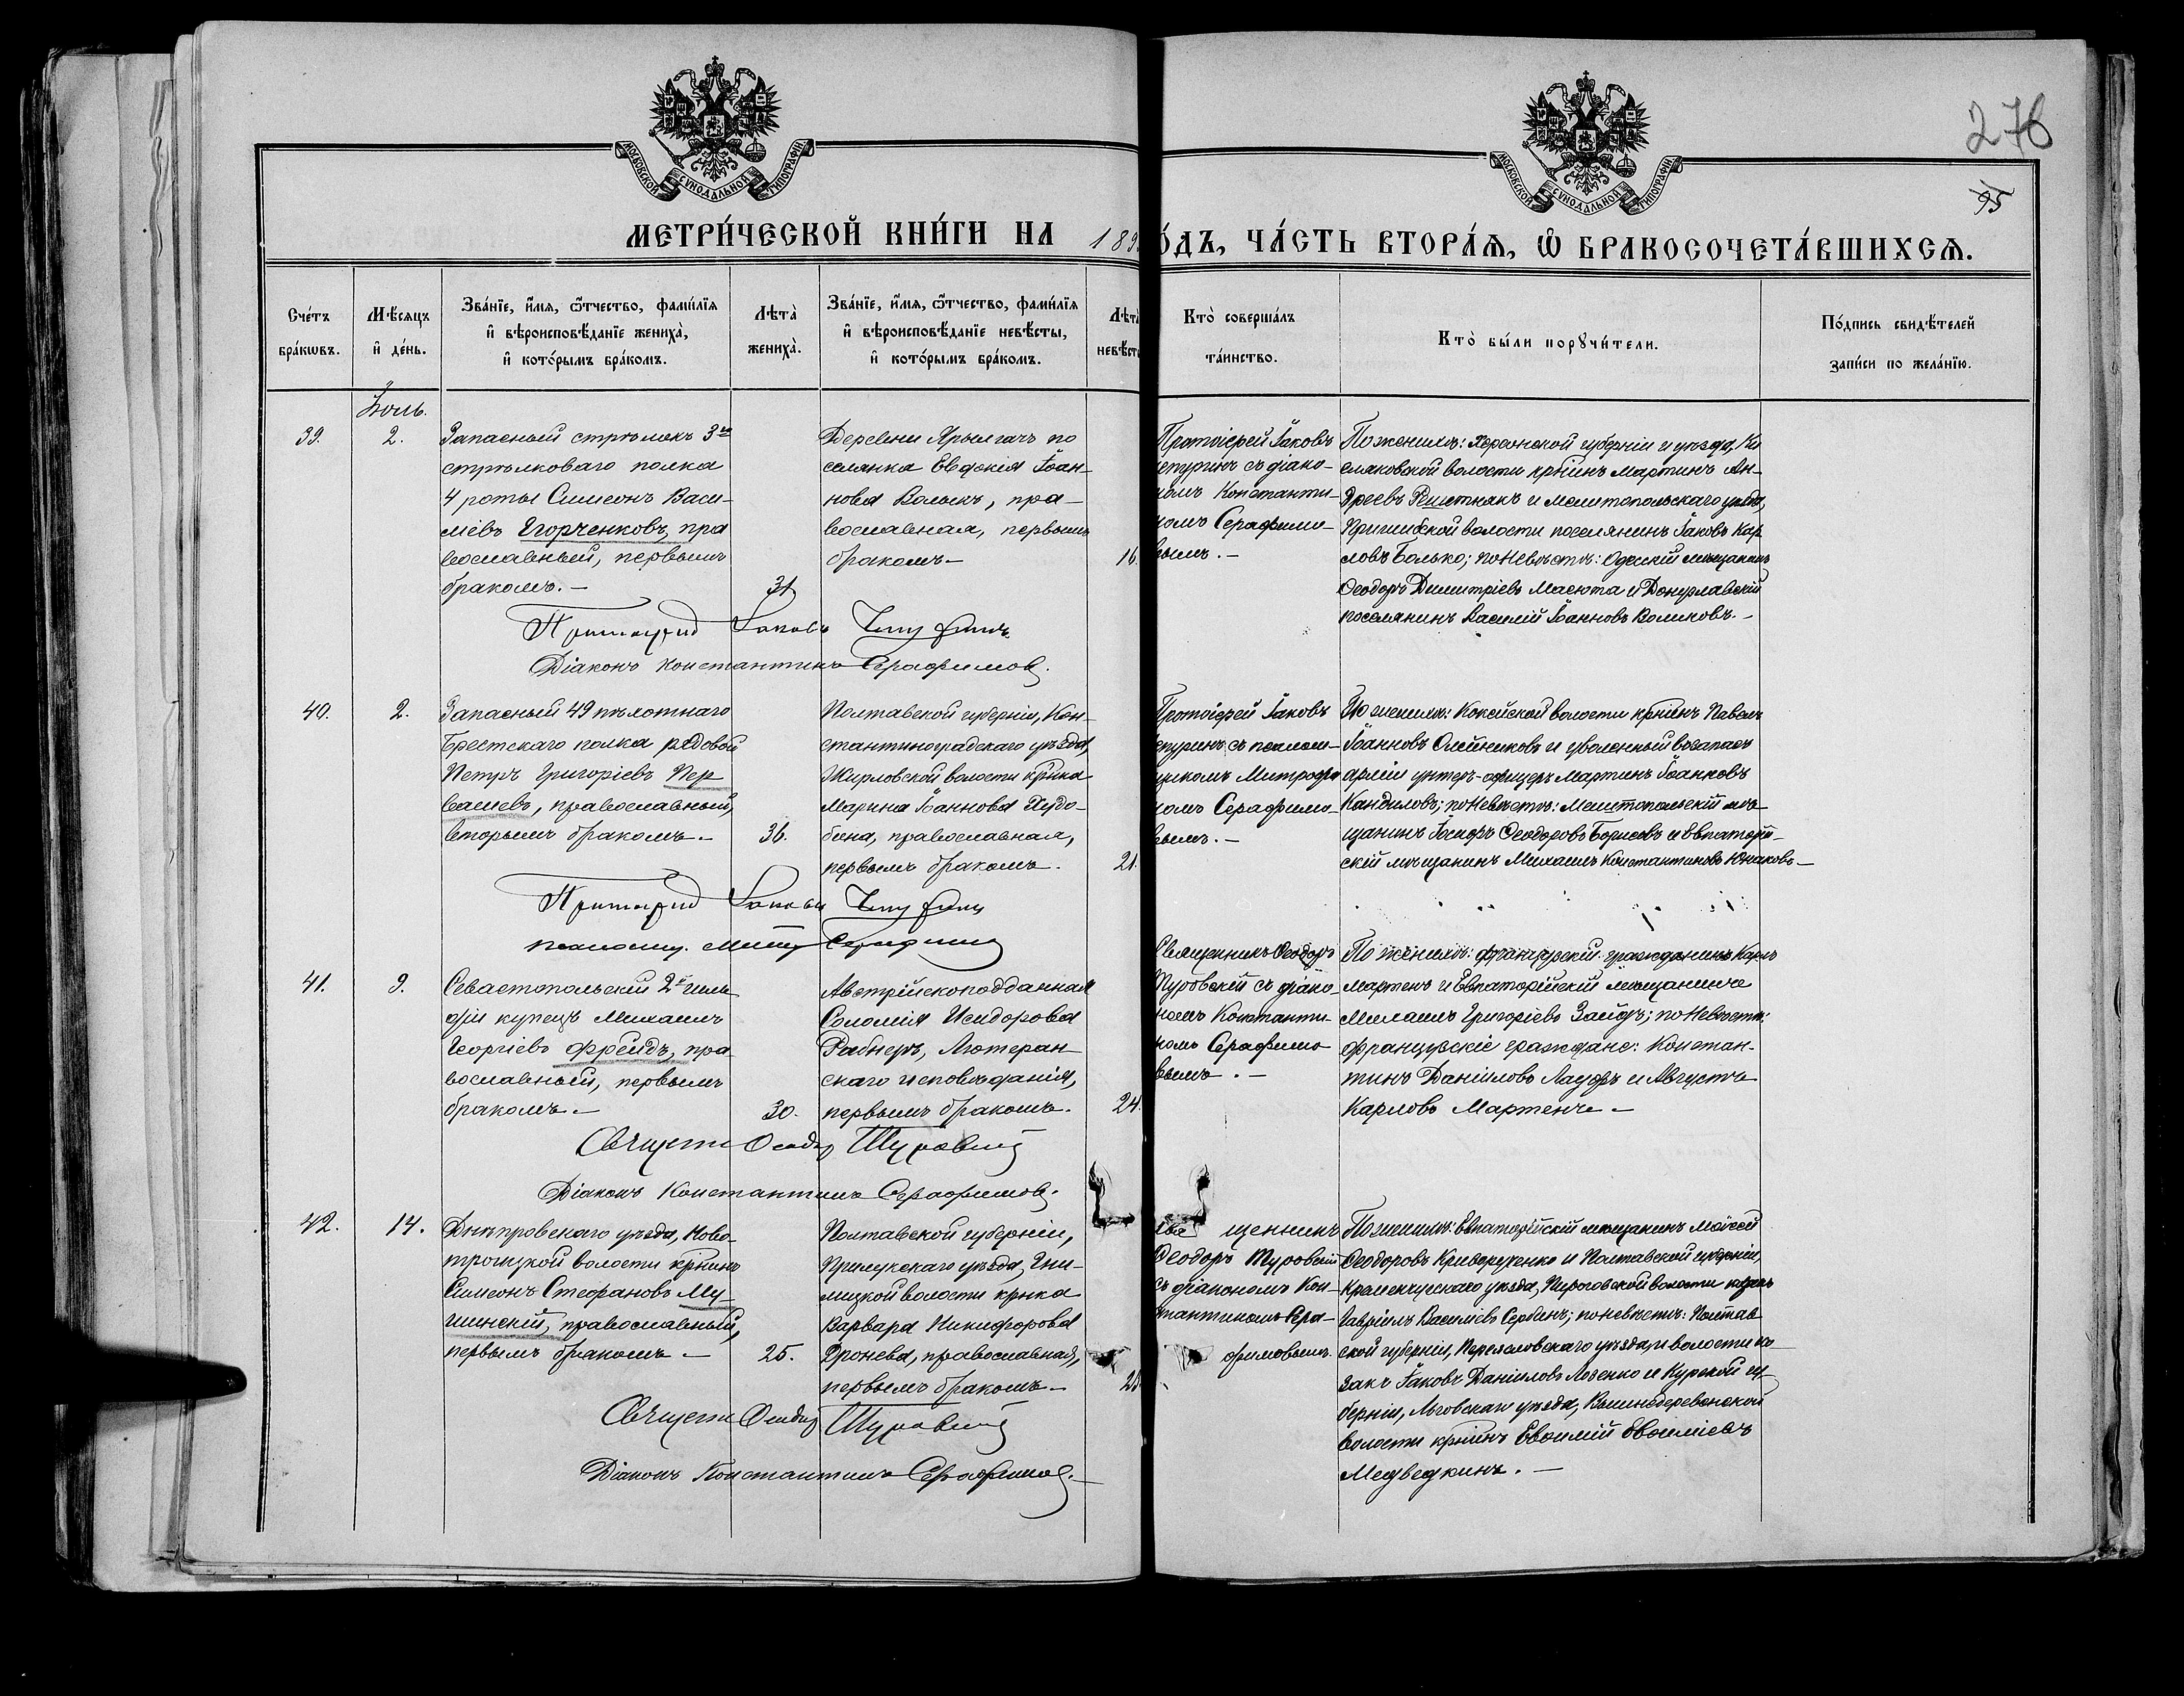 МОСКОВСКОЙ СУНОДАЛЬНОЙ ТИПОГРАФІИ
МОСКОВСКОЙ СУНОДАЛЬНОЙ ТИПОГРАФІИ
276
95
МЕТРИ́ЧЕСКОЙ КНИ́ГИ НА 189
О́ДЪ, ЧА́СТЬ ВТОРА́Я, Ѿ БРАКОСОЧЕТА́ВШИХСЯ.
Сче́тъ
бра́кѡвъ.
Мѣ́сяцъ
и҆ де́нь.
Зва́нїе, и҆́мя, ѻ҆́тчество, фами́лїя
и҆ вѣроисповѣ́данїе жениха̀,
и҆ кото́рымъ бра́комъ.
Лѣта̀
жениха̀.
Зва́нїе, и҆́мя, ѻ҆́тчество, фами́лїя
и҆ вѣроисповѣ́данїе невѣ́сты,
и҆ кото́рымъ бра́комъ.
Лѣта
невѣст
Кто̀ соверша́лъ
та́инство.
Кто̀ бы́ли порꙋчи́тели.
По́дпись свидѣ́телей
за́писи по жела́нїю.
Іюль.
39.
2.
Запасный стрѣлокъ 3го
стрѣлковаго полка
4 роты Симеонъ Васи-
лiевъ Егорченковъ, пра
вославный, первымъ
бракомъ.-
31
Деревни Ярылгачъ по
селянка Евдокія Іоан-
нова Волыкъ, пра-
вославная, первымъ
бракомъ-
16.
Протоіерей Іаковъ
епуринъ съ діако-
номъ Константи-
номъ Серафимо-
вымъ.-
По женихѣ: Херсонской губерніи и уѣзда, Ки
селяковской волости кр҃нинъ Мартинъ Ан-
дреевъ Решетнякъ и Мелитопольскаго уѣзда,
Пришибской волости поселянинъ Іаковъ Кар
ловъ Болько; по невѣстѣ: Одесскій мѣщанинъ
Ѳеодоръ Димитріевъ Масюта и Донузлавскій
поселянинъ Василій Іоанновъ Воликовъ.-
Протоіерей Іаковъ Чепуринъ
Діаконъ Константинъ Серафимов.
40.
2.
Запасный 49 пѣхотнаго
Брестскаго полка рядовой
Петръ Григоріевъ Пер
вашевъ, православный,
вторымъ бракомъ-
36.
Полтавской губерніи, Кон-
стантиноградскаго уѣзда,
Жирловской волости кр҃нка
Марина Іоаннова Худо-
бина, православная,
первымъ бракомъ.
21.
Протоіерей Іаковъ
епуринъ съ псалом-
щикомъ Митрофа
номъ Серафимо-
вымъ.-
По женихѣ: Коксйской волости кр҃нинъ Павелъ
Іоанновъ Олейниковъ и уволенный въ запасъ
арміи унтеръ-офицеръ Мартинъ Іоанновъ
Кандиловъ; по невѣстѣ: Мелитопольскій мѣ-
щанинъ Іосифъ Ѳеодоровъ Борисовъ и Евпаторій-
скій мѣщанинъ Михаилъ Константиновъ Юнаковъ-
Протоіерей Іаковъ Чепуринъ
псаломщ. Митр Серафимов
41.
9.
Севастопольскій 2й гиль
дiи купецъ Михаилъ
Георгіевъ Фрейдъ, пра
вославный, первымъ
бракомъ.-
30.
Австрійскоподданная
Соломія Исидорова
Рабнеръ, Лютеран
скаго исповѣданія,
первымъ бракомъ.
24.
Священникъ Ѳеодоръ
Туровскій съ діако-
номъ Константи-
номъ Серафимо
вымъ.-
По женихѣ: французскій гражданинъ Карлъ
Мартенъ и Евпаторійскій мѣщанинъ
Михаилъ Григоріевъ Зайдъ; по невѣстѣ:
французскіе граждане: Констан-
тинъ Даниловъ Лауръ и Августъ
Карловъ Мартенъ-
Священн Ѳеодор Туровскій
Діаконъ Константинъ Серафимов.
42.
14.
Днѣпровскаго уѣзда, Ново-
троицкой волости кр҃нинъ
Симеонъ Стефановъ Му-
шинскій, православный,
первымъ бракомъ-
25.
Полтавской губерніи,
Прилукскаго уѣзда, Гни-
лицкой волости кр҃нка
Варвара Никифорова
Дронева, православная,
первымъ бракомъ-
Свя щенникъ
Ѳеодоръ Туровскій
съ діакономъ Кон-
стантиномъ Сера-
фимовымъ.
По женихѣ: Евпаторійскій мѣщанинъ Моѵсей
Ѳеодоровъ Криворученко и Полтавской губерніи,
Кременчугскаго уѣзда, Пироговской волости казакъ
Гавріилъ Василіевъ Сербинъ; по невѣстѣ: Полтав
ской губерніи, Переяславскаго уѣзда и волости ка-
закъ Іаковъ Даніиловъ Лозенко и Курской гу-
берніи, Льговскаго уѣзда, Вышнедеревенской
волости кр҃нинъ Евѳимій Евѳиміевъ
Медведкинъ.-
Священн Ѳеодор Туровскій
Діаконъ Константинъ Серафимов.